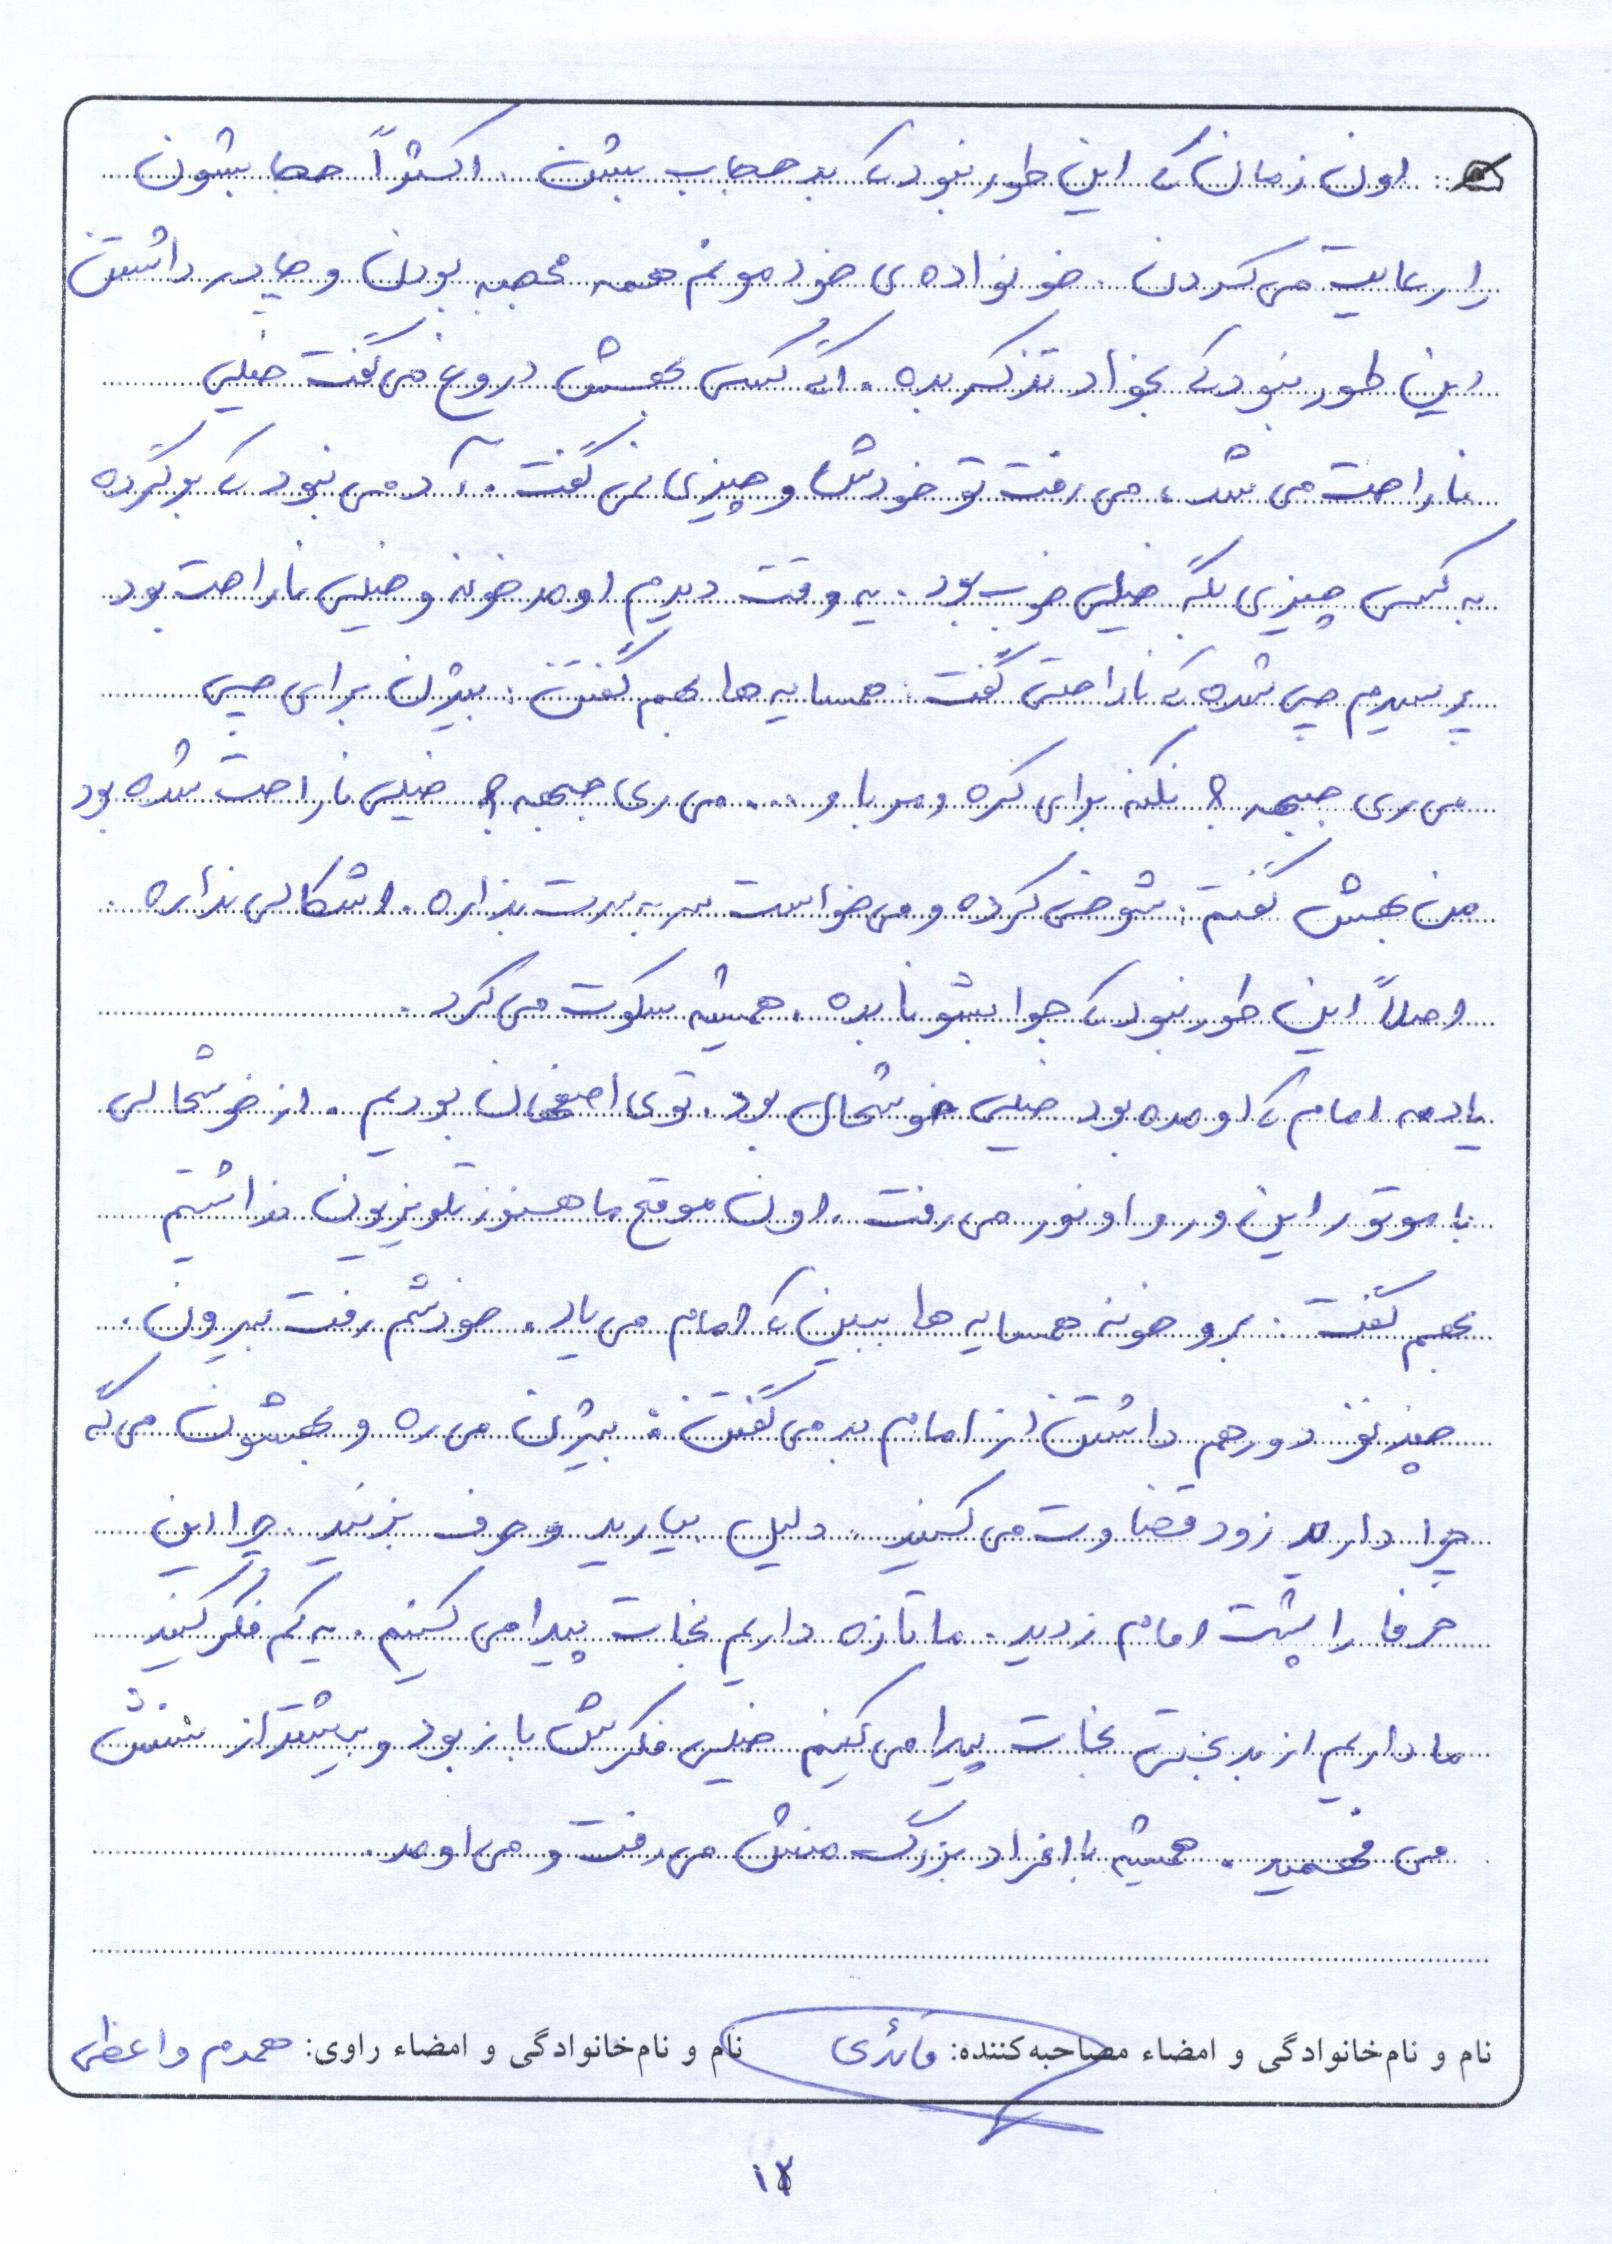 اون زمان که این طور نبود که بد حجاب بشن. اکثراً حجابشون
را رعایت می کردن. خونواده ی خودمونم همه محجبه بودن و چادر داشتن
این طور نبود که بخواد تذکر بده. اگه کسی بهش دروغ می گفت خیلی
ناراحت می شد، می رفت تو خودش و چیزی نمی گفت. آدمی نبود که برگرده
به کسی چیزی بگه خیلی خوب بود. یه وقت دیدم اومد خونه و خیلی ناراحت بود
پرسیدم چی شده که ناراحتی گفت: همسایه ها بهم گفتن: بیژن برای چی
می ری جبهه؟ نکنه برای کره و مربا و .... می ری جبهه؟ خیلی ناراحت شده بود
من بهش گفتم: شوخی کرده و می خواست سر به سرت بذاره. اشکالی نداره.
اصلاً این طور نبود که جوابشونا بده. همیشه سکوت می کرد.
یادمه امام که اومده بود خیلی خوشحال بود. توی اصفهان بودیم. از خوشحالی
با موتور این ور و اونور می رفت. اون موقع ما هنوز تلویزیون نداشتیم
بهم گفت: برو خونه همسایه ها ببین که امام می یاد. خودشم رفت بیرون.
چند نفر دور هم داشتن از امام بد می گفتن: بیژن می ره و بهشون می گه
چرا دارید زود قضاوت می کنید. دلیل بیارید و حرف بزنید. چرا این
حرفا را پشت امام زدید. ما تازه داریم نجات پیدا می کنیم. یه کم فکر کنید
ما داریم از بدبختی نجات پیدا می کنیم خیلی فکرش باز بود و بیشتر از سنش
می فهمید. همیشه با افراد بزرگ منش می رفت و می اومد.
نام و نام‌خانوادگی و امضاء مصاحبه‌کننده: قائدی نام و نام‌خانوادگی و امضاء راوی: همدم واعظی
۱۲